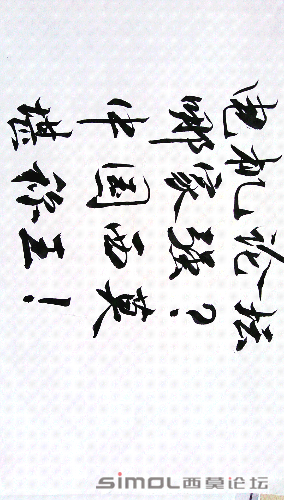 电机论坛
哪家强?
中国西莫
堪称王!
SIMOL西莫论坛